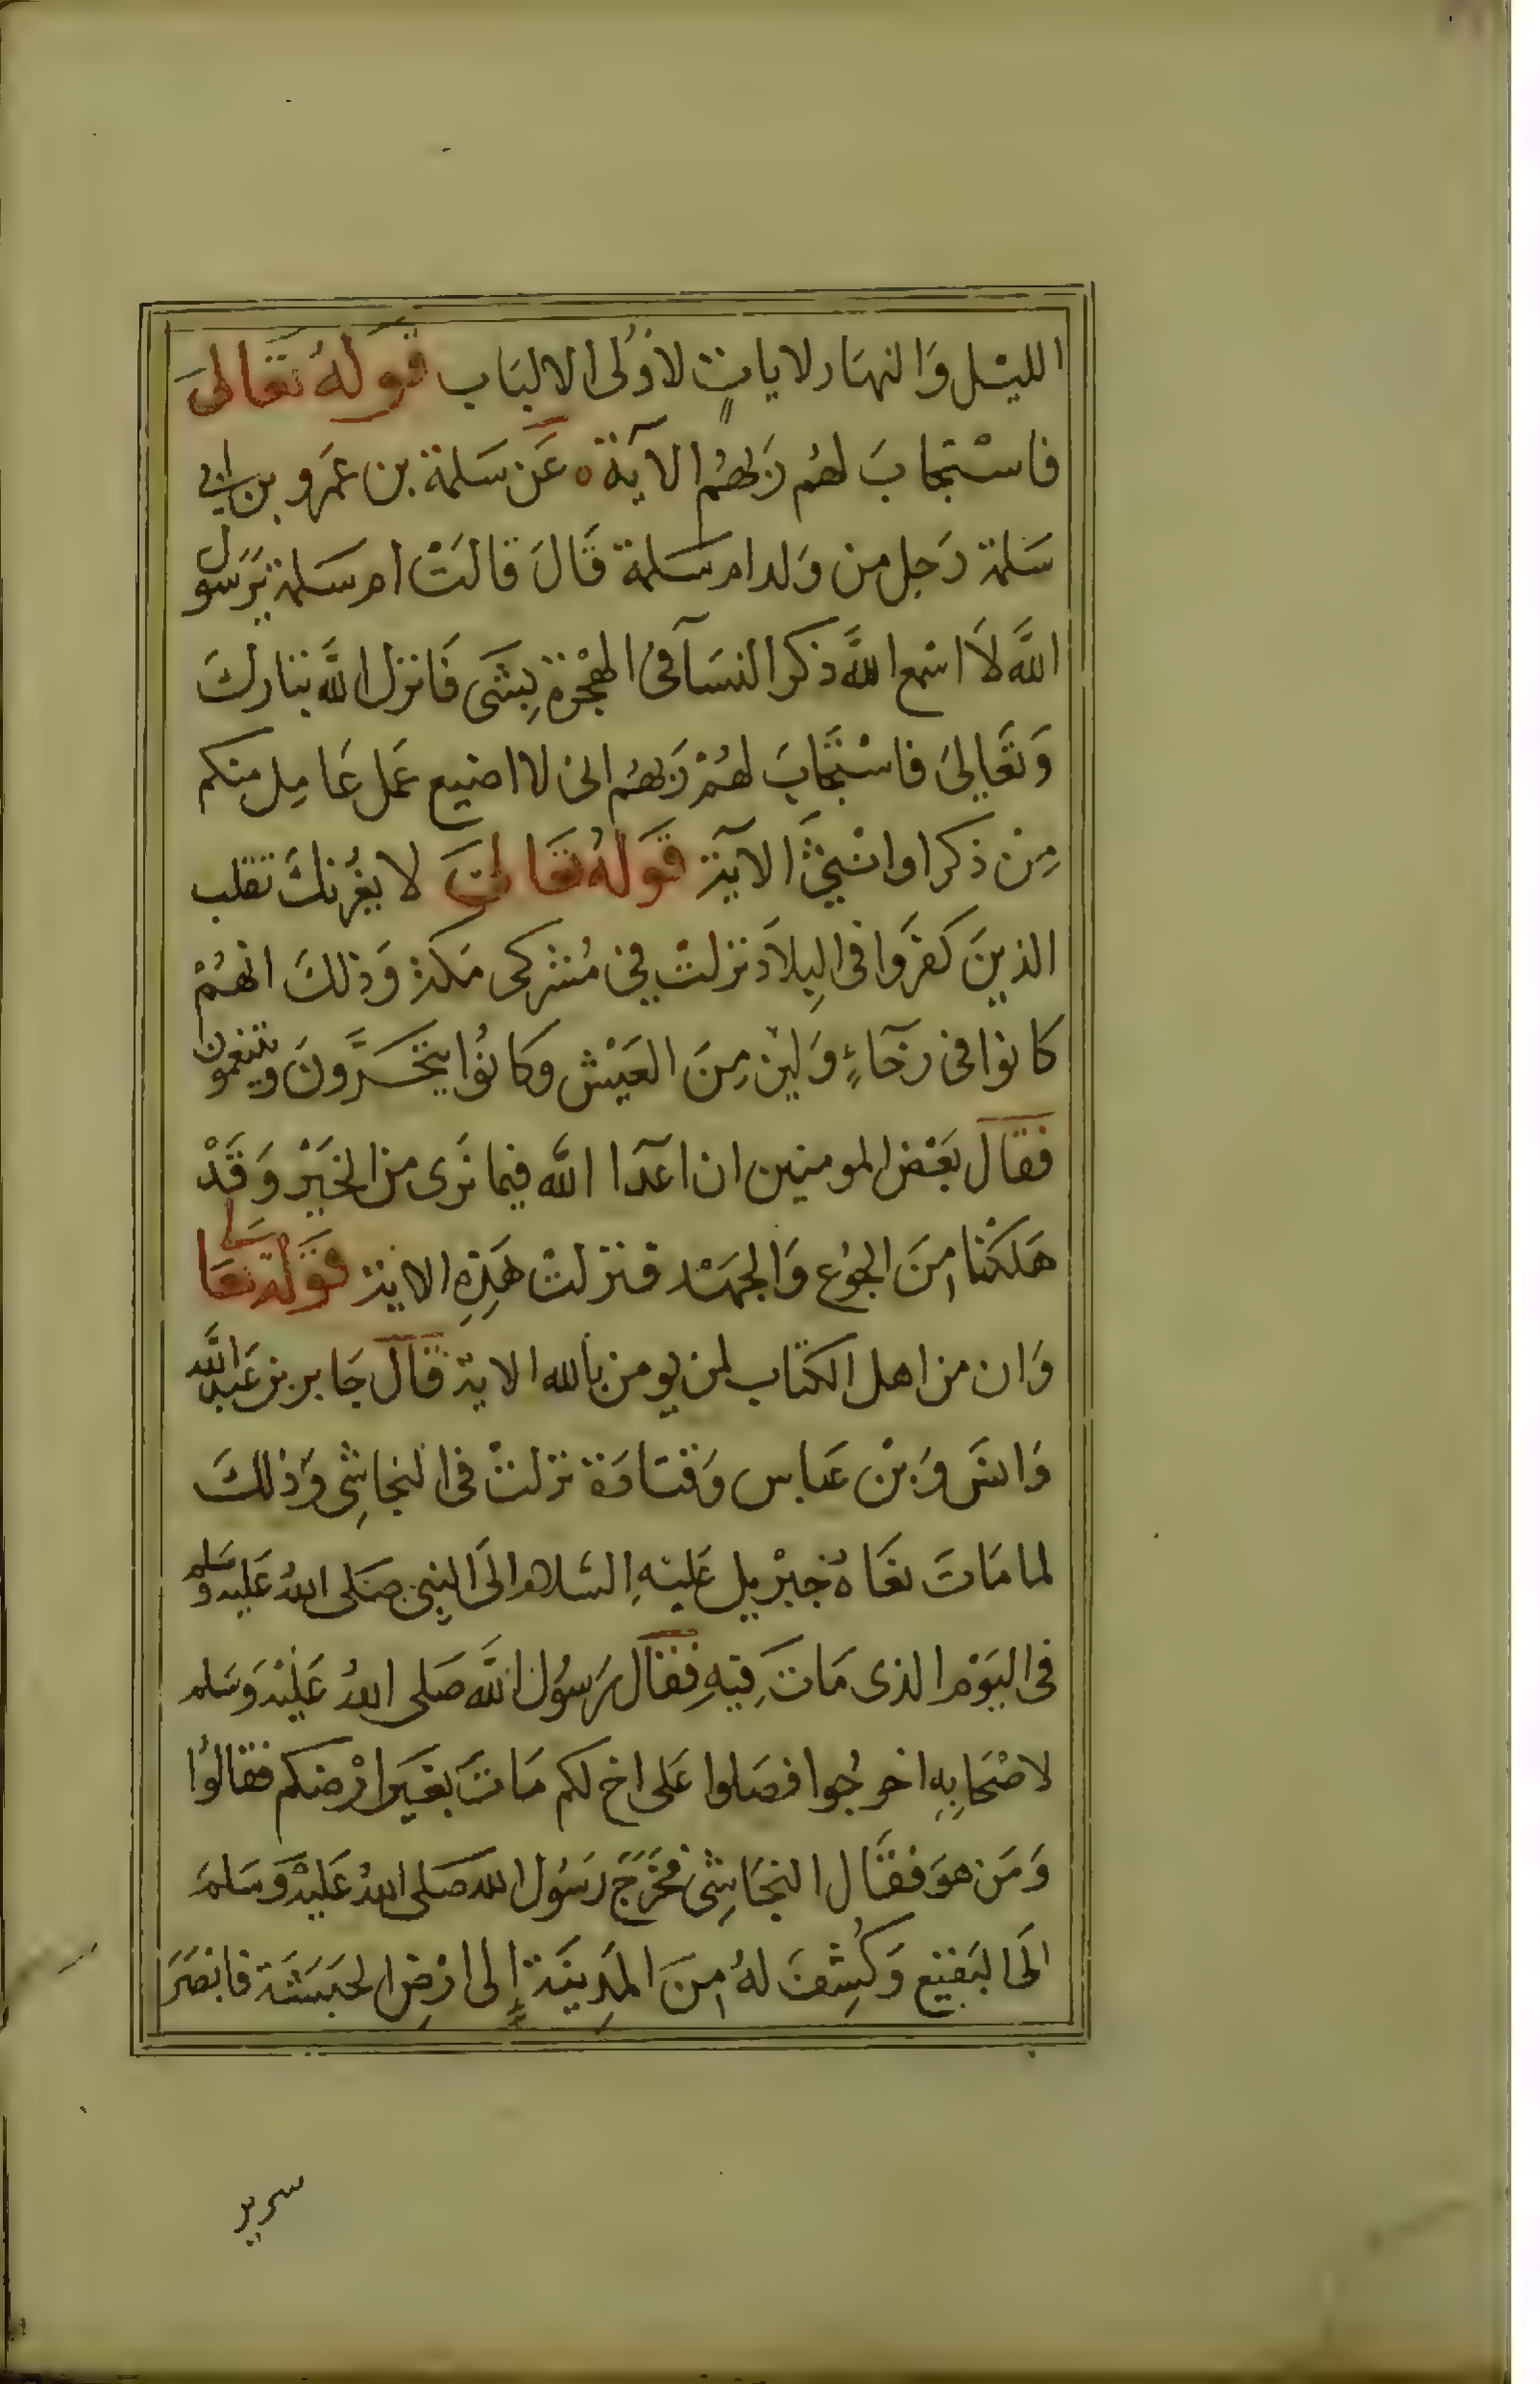 الليْل وَالنهَار لاياتٍ لاوُلى الالبَاب قوَلهُ تعَالىَ
فاسْتجابَ لهُم رَبهُم الآية ه عَن سَلمة بن عمَرو بن ابى
سَلمة رَجل من وَلد ام سَلمة قَالَ قالتْ ام سَلمة يرَسول
اللَّه لاَ اسْمع اللَّه ذكر النسَآ فى الهجْرة بِشَى فَانزل اللَّه تبارك
وَتعَالىَ فاسْتجَابَ لهُمْ رَبهُم انى لا اضيع عَمل عَامِل منكم
مِنْ ذكر او انْثىَ الآية قوَلهُ تعَالىَ لا يغُرنكَ تقلب
الذينَ كفَروا فى البِلاَد نزلتْ فِى مُشركى مَكة وَذلكَ انهُمْ
كانوا فى رخَآءٍ وَليْن مِنَ العَيْش وكانوُا يتجرَّونَ ويتنعمون
فقال بَعْض المومنين ان اعدآ اللَّه فيما نرَى من الخيَرْ وَقَدْ
هَلكْنا مِنَ الجوُع وَالجهَد فنزلتْ هَذِهِ الاية قوَله تعَالى
وَان من اهل الكتاب لمن يومن بالله الاية قال جَابر بن عَبد اللَّه
وَانسَ وَبْن عَباس وَقتادَة نزلتْ فى النجاشِى وَذلكَ
لما مَاتَ نعَاهُ جبْريل عَليْهِ السَلام الىَ النبِى صَلى اللهُ عَليه وَسَلم
فى اليَوْم الذى مَاتَ فيهِ فقال رَسوُل اللَّه صَلى اللهُ عَليْه وَسَلم
لاصْحَابِهِ اخرجُوا فصَلوا عَلى اخ لكم مَاتَ بغيَر ارْضكم فقالوُا
وَمَن هوَ فقَال النجَاشِى فخَرَجَ رَسُول الله صَلى اللهُ عَليْه وَسَلمَ
الىَ البَقيْع وَكُشِفَ لهُ مِنَ المَدِينَة إِلى ارْضِ الحبَشَة فابْصَرَ
سرير